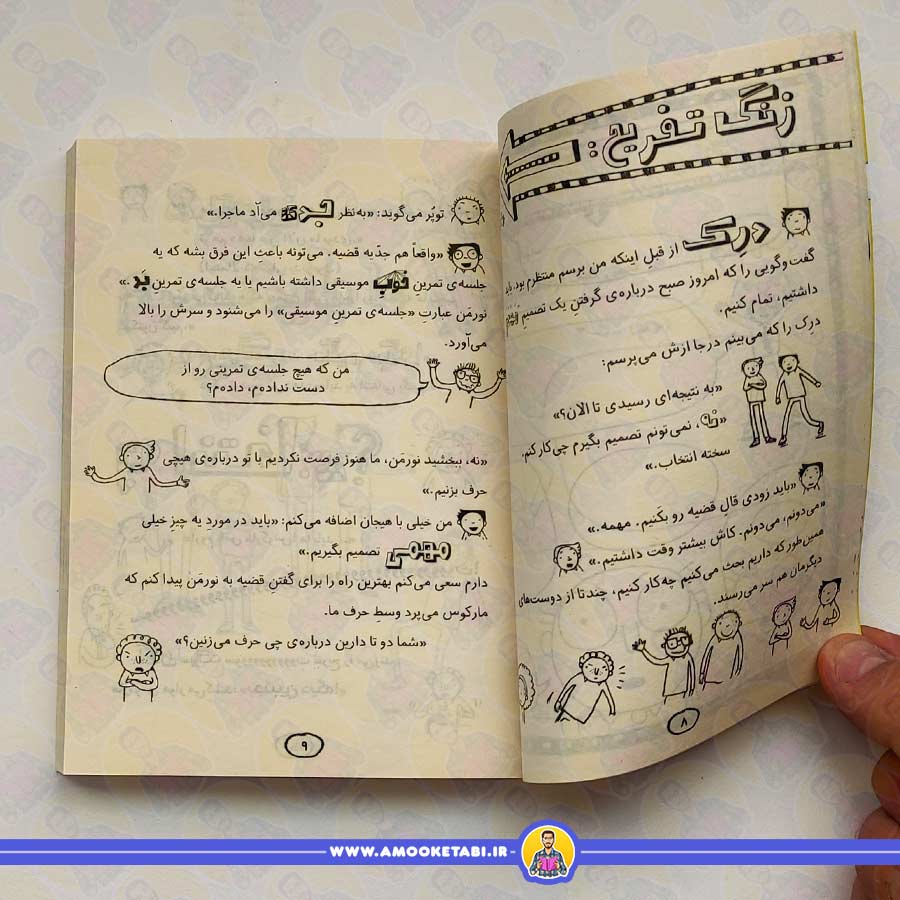 زنگ تفریح:
درک از قبلِ اینکه من برسم منتظرم بود. باید
گفت‌وگویی را که امروز صبح درباره‌ی گرفتنِ یک تصمیمِ
داشتیم، تمام کنیم.
درک را که می‌بینم درجا ازش می‌پرسم:
«به نتیجه‌ای رسیدی تا الان؟»
«نه، نمی‌تونم تصمیم بگیرم چی‌کار کنم.
سخته انتخاب.»
«باید زودی قالِ قضیه رو بکَنیم. مهمه.»
«می‌دونم، می‌دونم. کاش بیشتر وقت داشتیم.»
همین‌طور که داریم بحث می‌کنیم چه‌کار کنیم، چندتا از دوست‌های
دیگرمان هم سر می‌رسند.
۸
توپُر می‌گوید: «به‌نظر جدی می‌آد ماجرا.»
«واقعاً هم جدّیه قضیه. می‌تونه باعثِ این فرق بشه که یه
جلسه‌ی تمرینِ خوبِ موسیقی داشته باشیم یا یه جلسه‌ی تمرینِ بَد.»
نورمَن عبارتِ «جلسه‌ی تمرینِ موسیقی» را می‌شنود و سرش را بالا
می‌آورد.
من که هیچ جلسه‌ی تمرینی رو از
دست نداده‌م، داده‌م؟
«نه، ببخشید نورمَن، ما هنوز فرصت نکردیم با تو درباره‌ی هیچی
حرف بزنیم.»
من خیلی با هیجان اضافه می‌کنم: «باید در موردِ یه چیزِ خیلی
مهمی تصمیم بگیریم.»
دارم سعی می‌کنم بهترین راه را برای گفتنِ قضیه به نورمَن پیدا کنم که
مارکوس می‌پرد وسطِ حرف ما.
«شما دو تا دارین درباره‌ی چی حرف می‌زنین؟»
۹
WWW.AMOOKETABI.IR